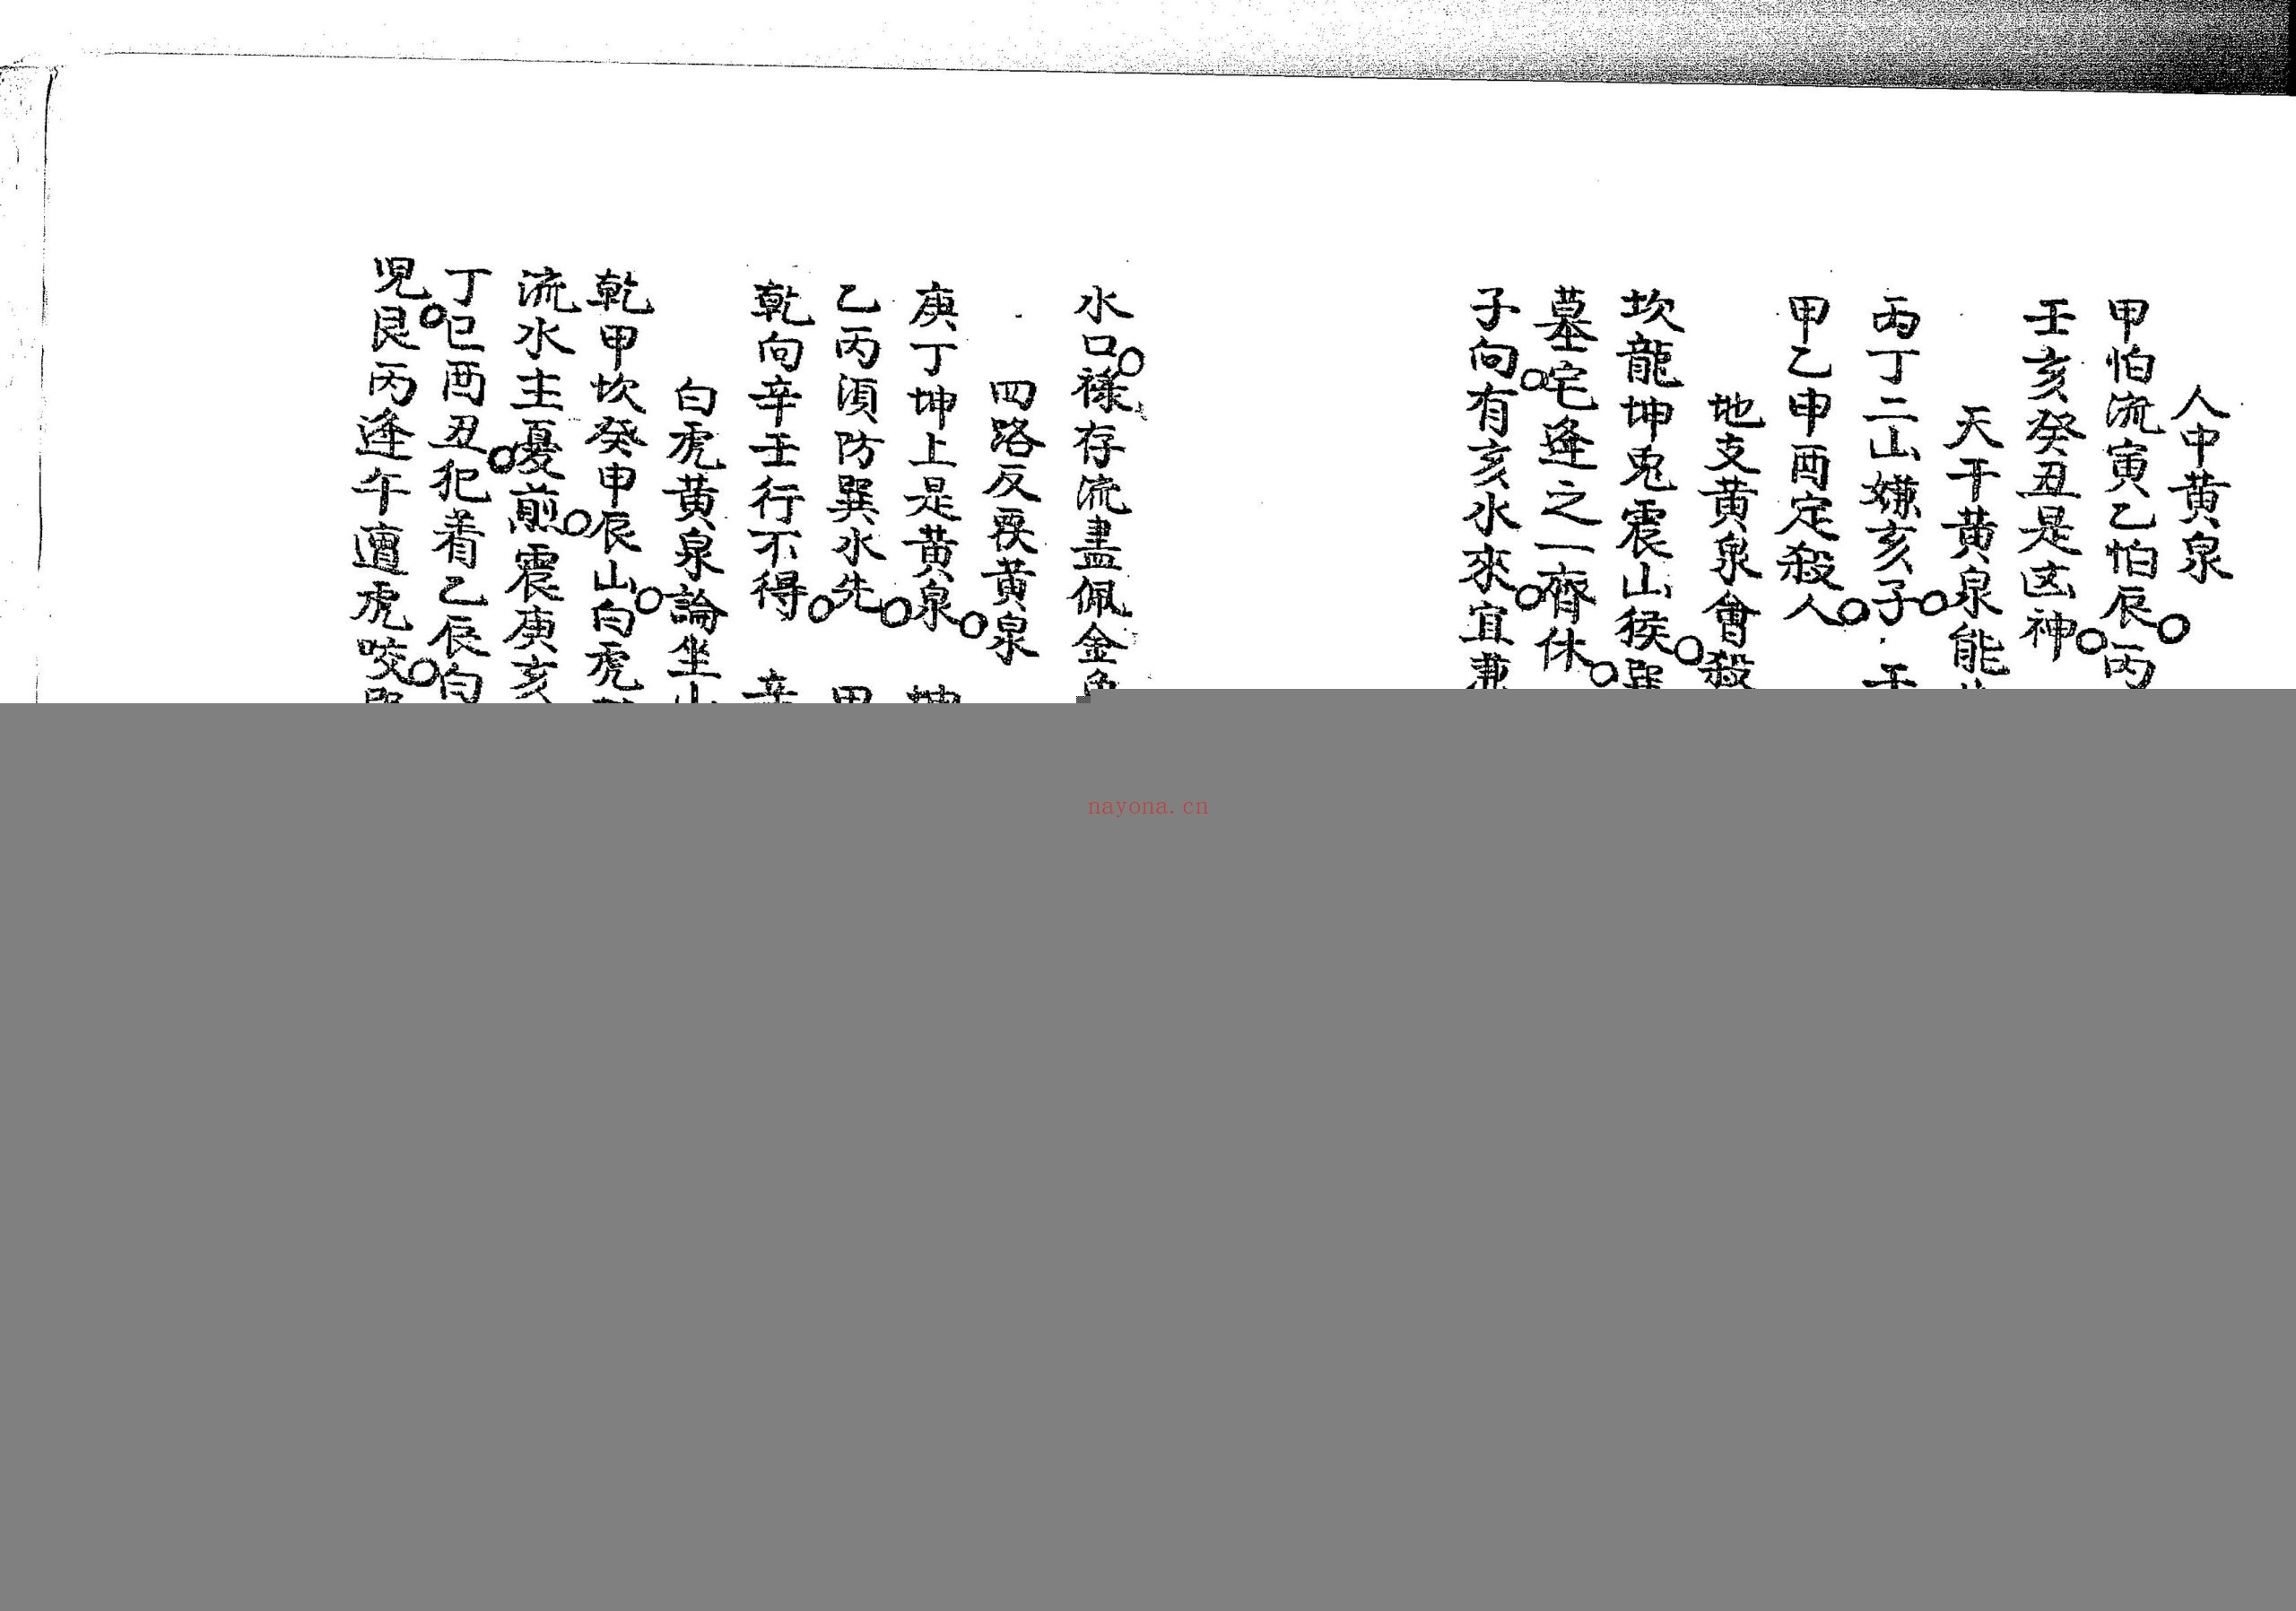 人中黄泉
甲怕流寅乙怕辰○丙
壬亥癸丑是凶神○
天干黄泉能
丙丁二山嫌亥子○
甲乙申酉定殺人○
地支黄泉會殺
坎龍坤兎震山猴○巽
墓宅逢之一齊休○
子向○有亥水來○宜兼
水口○祿存流盡佩金魚
四路反覄黄泉
庚丁坤上是黄泉○ 坤
乙丙湏防巽水先○ 甲
乾向辛壬行不得○ 辛
白虎黄泉論坐山
乾甲坎癸申辰山○白虎
流水主憂煎○震庚亥
丁巳酉丑○犯着乙辰白
児○艮丙逢午遭虎咬○
nayona.cn